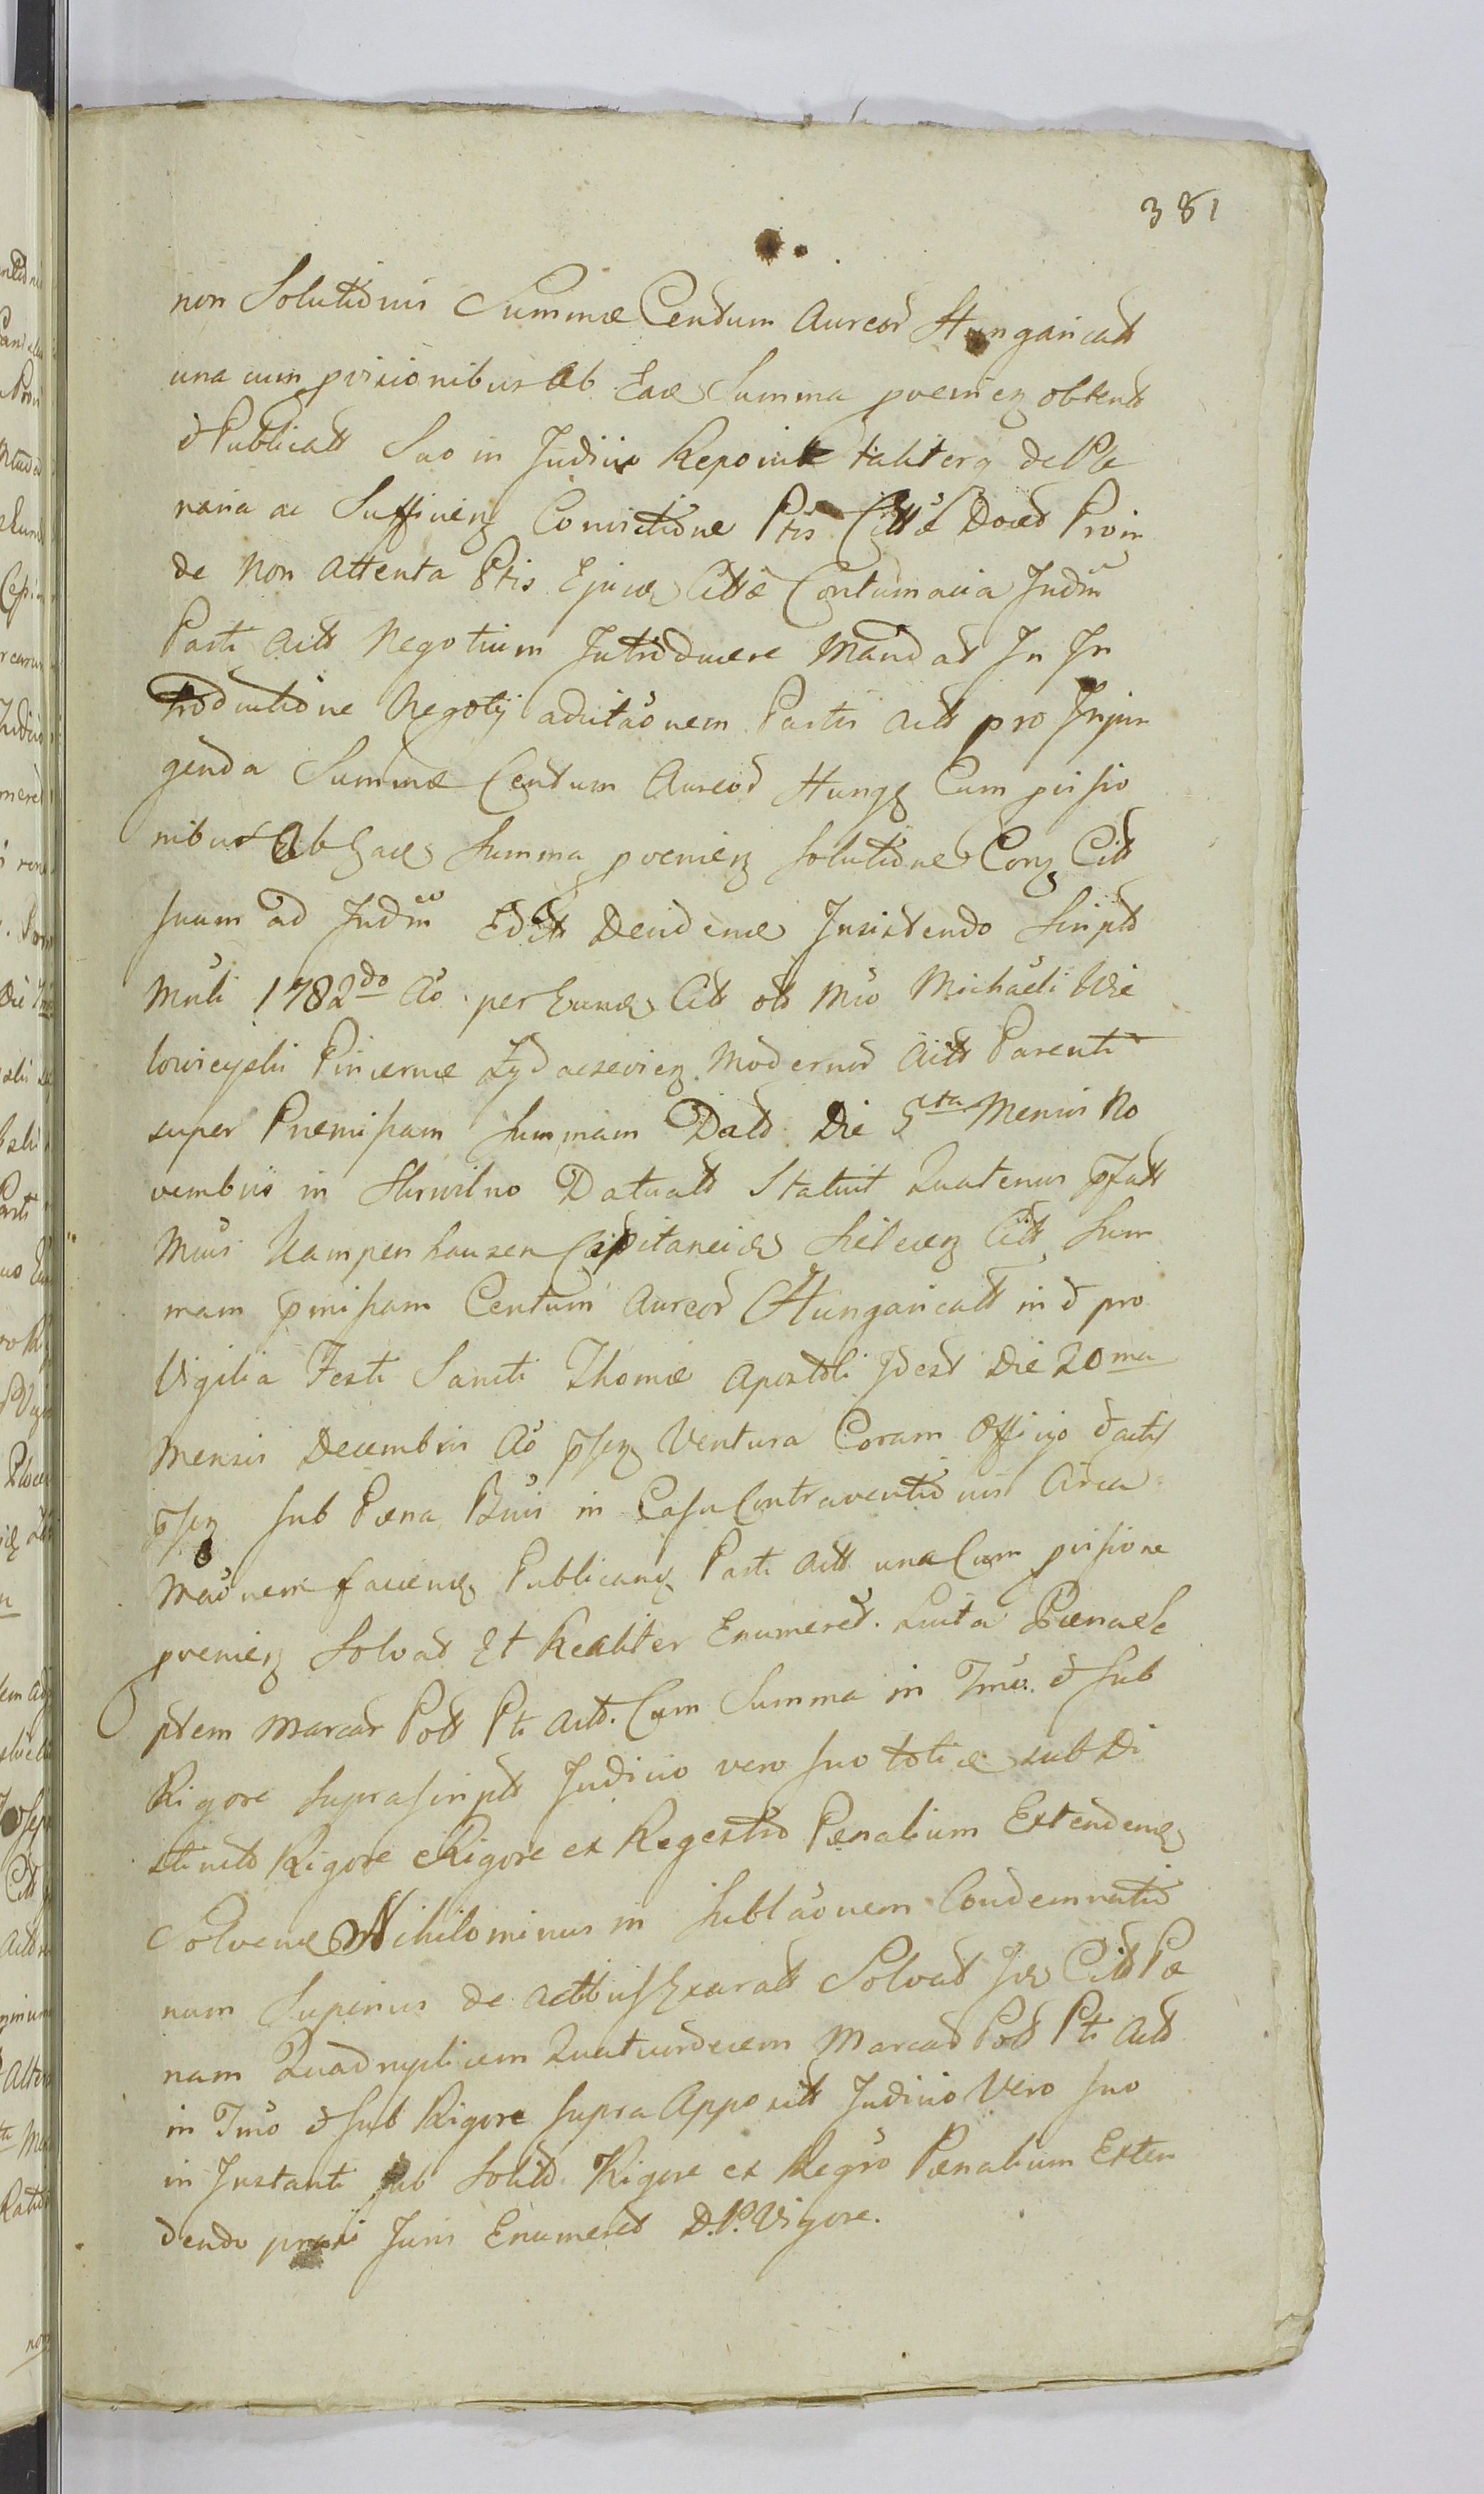 381
non Solutionis Summæ Centum Aureor Hungaricall
una cum provisionibus Ab Eade Summa proveniez obtent
et Publicatt Suo in Judicio Reponit taliterq de Ple
naria ac Sufficienz Convictione Ptis Cittæ Doced Proin
de Non Attenta Ptis Ejusd Cittæ Contumacia Judm
Parti Actt Negotium Introducere Mandat In In
troductione Negotij adcitaonem Partis Actt pro Injun
genda Summæ Centum Aureor Hungz Cum provisio
nibus Ab Eade Summa provenienz solutione Conz Citt
suum ad Judm Deciden Insistendo Scriptt
Mnli 1782do Ao per Eund Citt olt Mco Michaeli Wie
lowieyski Pincernæ Zydaczewienz Moderno Actt Parenti
super Præmissam Summam Datt Die 5ta Mensis No
vembris in Datuatt Statuit Quatenus prefatt
Mcus Kampenhausen Capitaneid Citt Sum
mam pmissam Centum Aureor Hungaricatt in et pro
Vigilia Festi Sancti Thomæ Apostoli Idest Die 20ma
Mensis Decembris Ao psenz Ventura Coram Officio et actis
psenz sub Pæna Bnis in Casu Contraventionis Circa
Maonem faciend Publicand Parti Actt una Cum provisione
provenienz Solvat Et Realiter Enumeret. Luita Pæna Se
ptem Marcar Poll Pti Actt. Cum Summa in Tmo et sub
Rigore suprascriptt Judicio vero suo totide sub Di
stinctt Rigore Rigore ex Regestro Pænalium Extendend
Solvend Nihilominus in Sublaonem Condemnatio
num Superius de Actibus Exaratt Solvat Id Citt Pæ
nam Quadruplicem Quatuordecem Marcar Poll Pti Actt
in Tmo et sub Rigore supra Appositt Judicio Vero suo
in Instanti sub Solito Rigore ex Regro Pænalium Exten
dendo praxi Juris Enumeret D.P. Vigore.